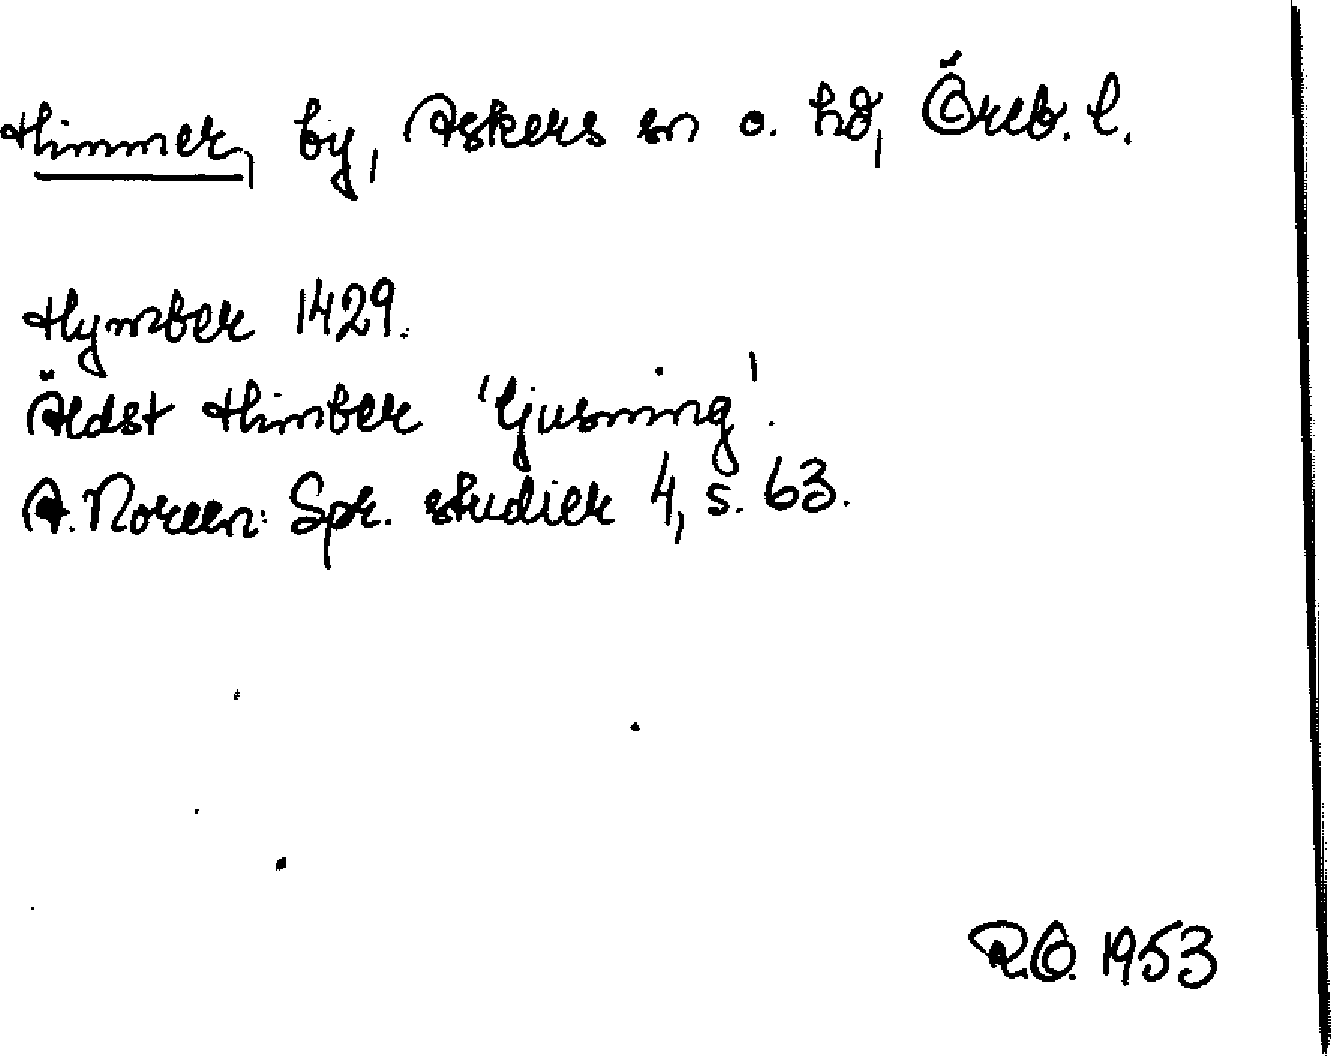 Himmer, by, Askers sn o. hd, Öreb. l.
Hymber 1429.
Äldst Himber 'ljusning'.
A. Noreen: Spr. studier 4, s. 63.
R.O. 1953